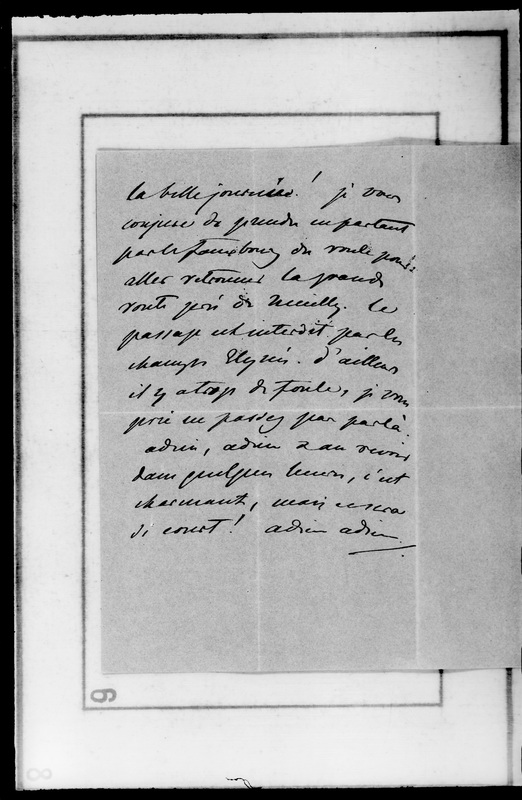 la belle journée! je vous
conjure de prendre en partant
par le faubourg du roule pour
aller retrouver la grande
route près de Neuilly. le
passage est interdit par les
champs Elysées. d'ailleurs
il y a trop de foule, je vous
prie ne passez pas par là.
adieu, adieu & au revoir
dans quelques heures, c'est
charmant, mais ce sera
si court! adieu adieu.
6
8